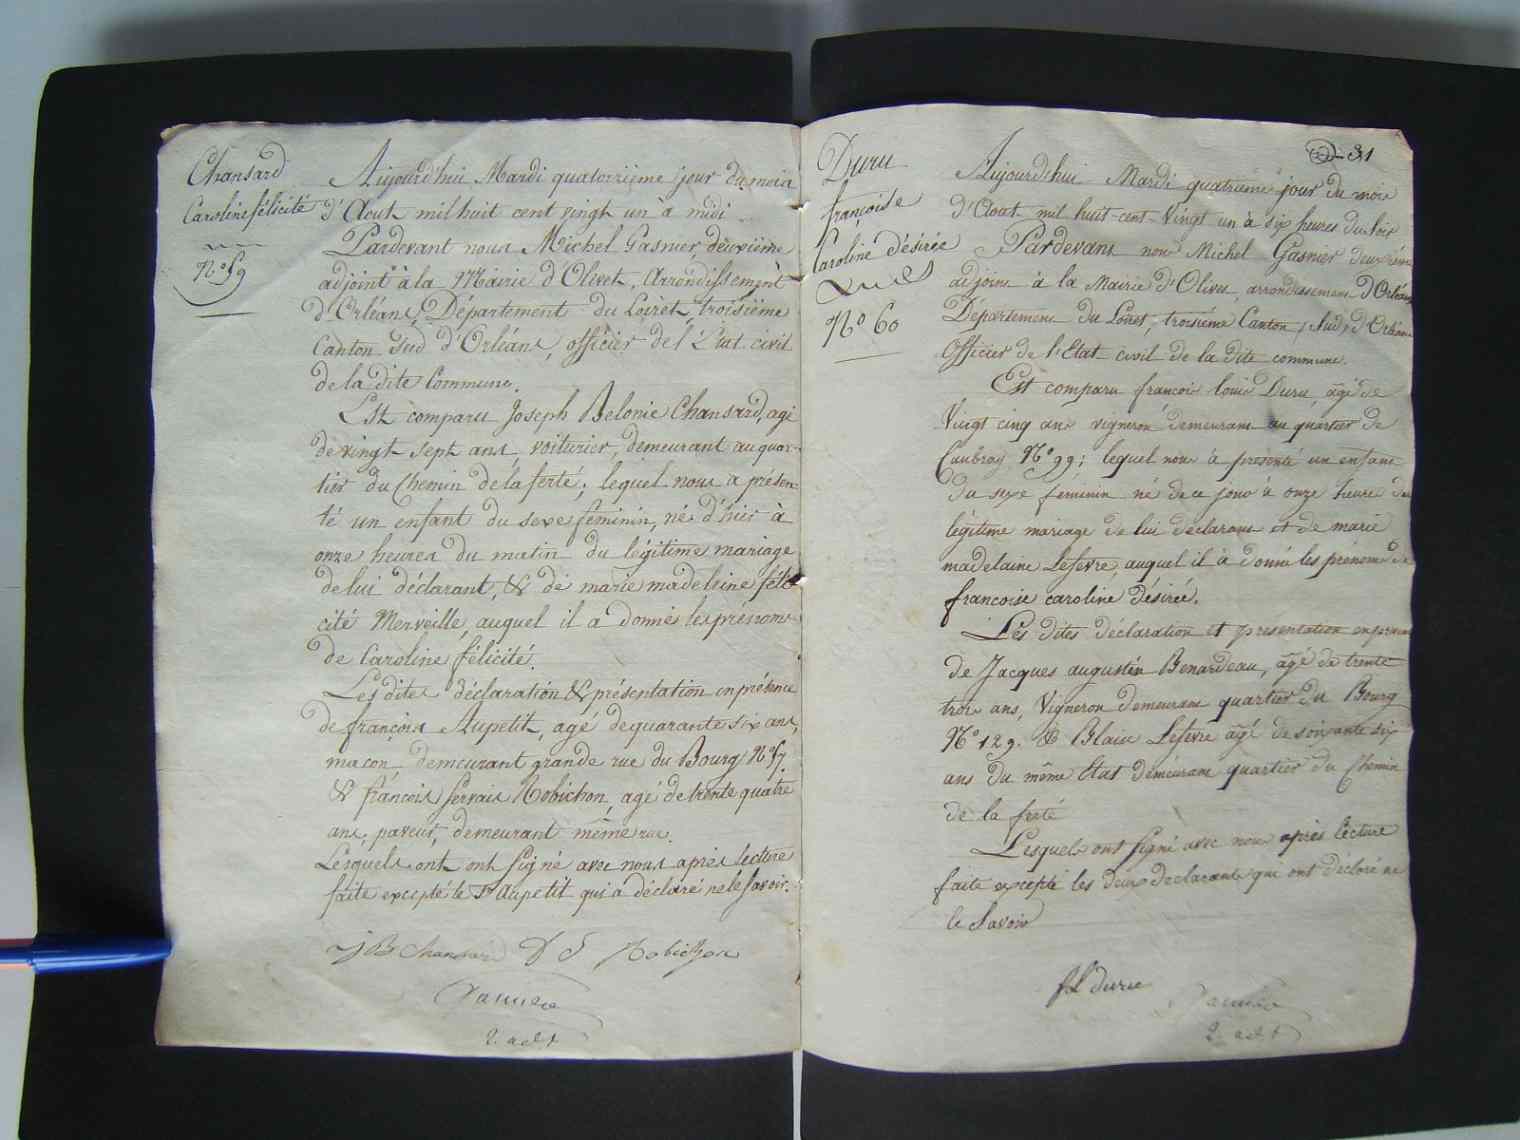 Chansard
Caroline félicité
N° 59
Aujourd'hui Mardi quatorzième jour du mois
d'Aout mil huit cent vingt un à midi
Pardevant nous Michel Gasnier, deuxième
adjoint à la Mairie d'Olivet, Arrondissement
d'Orléans, Département du Loiret, troisième
Canton Sud d'Orléans, officier de l'Etat civil
de la dite Commune.
Est comparu Joseph Belonie Chansard, agé
de vingt sept ans, voiturier, demeurant au quar-
tier du Chemin de la ferté; lequel nous a présen-
té un enfant du sexe féminin, né d'hier à
onze heures du matin du légitime mariage
de lui déclarant, & de marie madeleine féli-
cité Merveille, auquel il a donné les prénoms
de Caroline félicité.
Les dites déclaration & présentation en présence
de françois Aupetit, agé de quarante six ans,
macon demeurant grande rue du Bourg N° 57
& françois Servais Robichon, agé de trente quatre
ans, paveur, demeurant même rue.
Lesquels ont ont signé avec nous après lecture
faite excepté le Sr Aupetit qui a déclaré ne le savoir.
J B Chansard f S Robichon
Gasnier
2. adjt
31
Duru
françoise
Caroline désirée
N° 60
Aujourd'hui Mardi quatrième jour du mois
d'Aout mil huit-cent-Vingt un à six heures du soir
Pardevant nous Michel Gasnier deuxième
adjoint à la Mairie d'Olivet, arrondissement d'Orléans
Département du Loiret, troisième Canton, Sud, d'Orléans
Officier de l'Etat civil de la dite commune.
Est comparu francois louis Duru, âgé de
Vingt cinq ans vigneron demeurant au quartier de
Caubray N° 99; lequel nous à présenté un enfant
du sexe féminin né de ce jour à onze heure du
légitime mariage de lui déclarant et de marie
madelaine Lefevre, auquel il à donné les prénoms de
francoise caroline désirée.
Les dites déclaration et presentation en présence
de Jacques augustin Benardeau, âgé de trente
trois ans, Vigneron demeurant quartier du Bourg
N° 129. & Blaise Lefevre âgé de soixante six
ans du même Etat demeurant quartier du Chemin
de la ferté
Lesquels ont signé avec nous après lecture
faite excepté les deux déclarants qui ont déclaré ne
le Savoir
fL duru
Gasnier
2. adjt